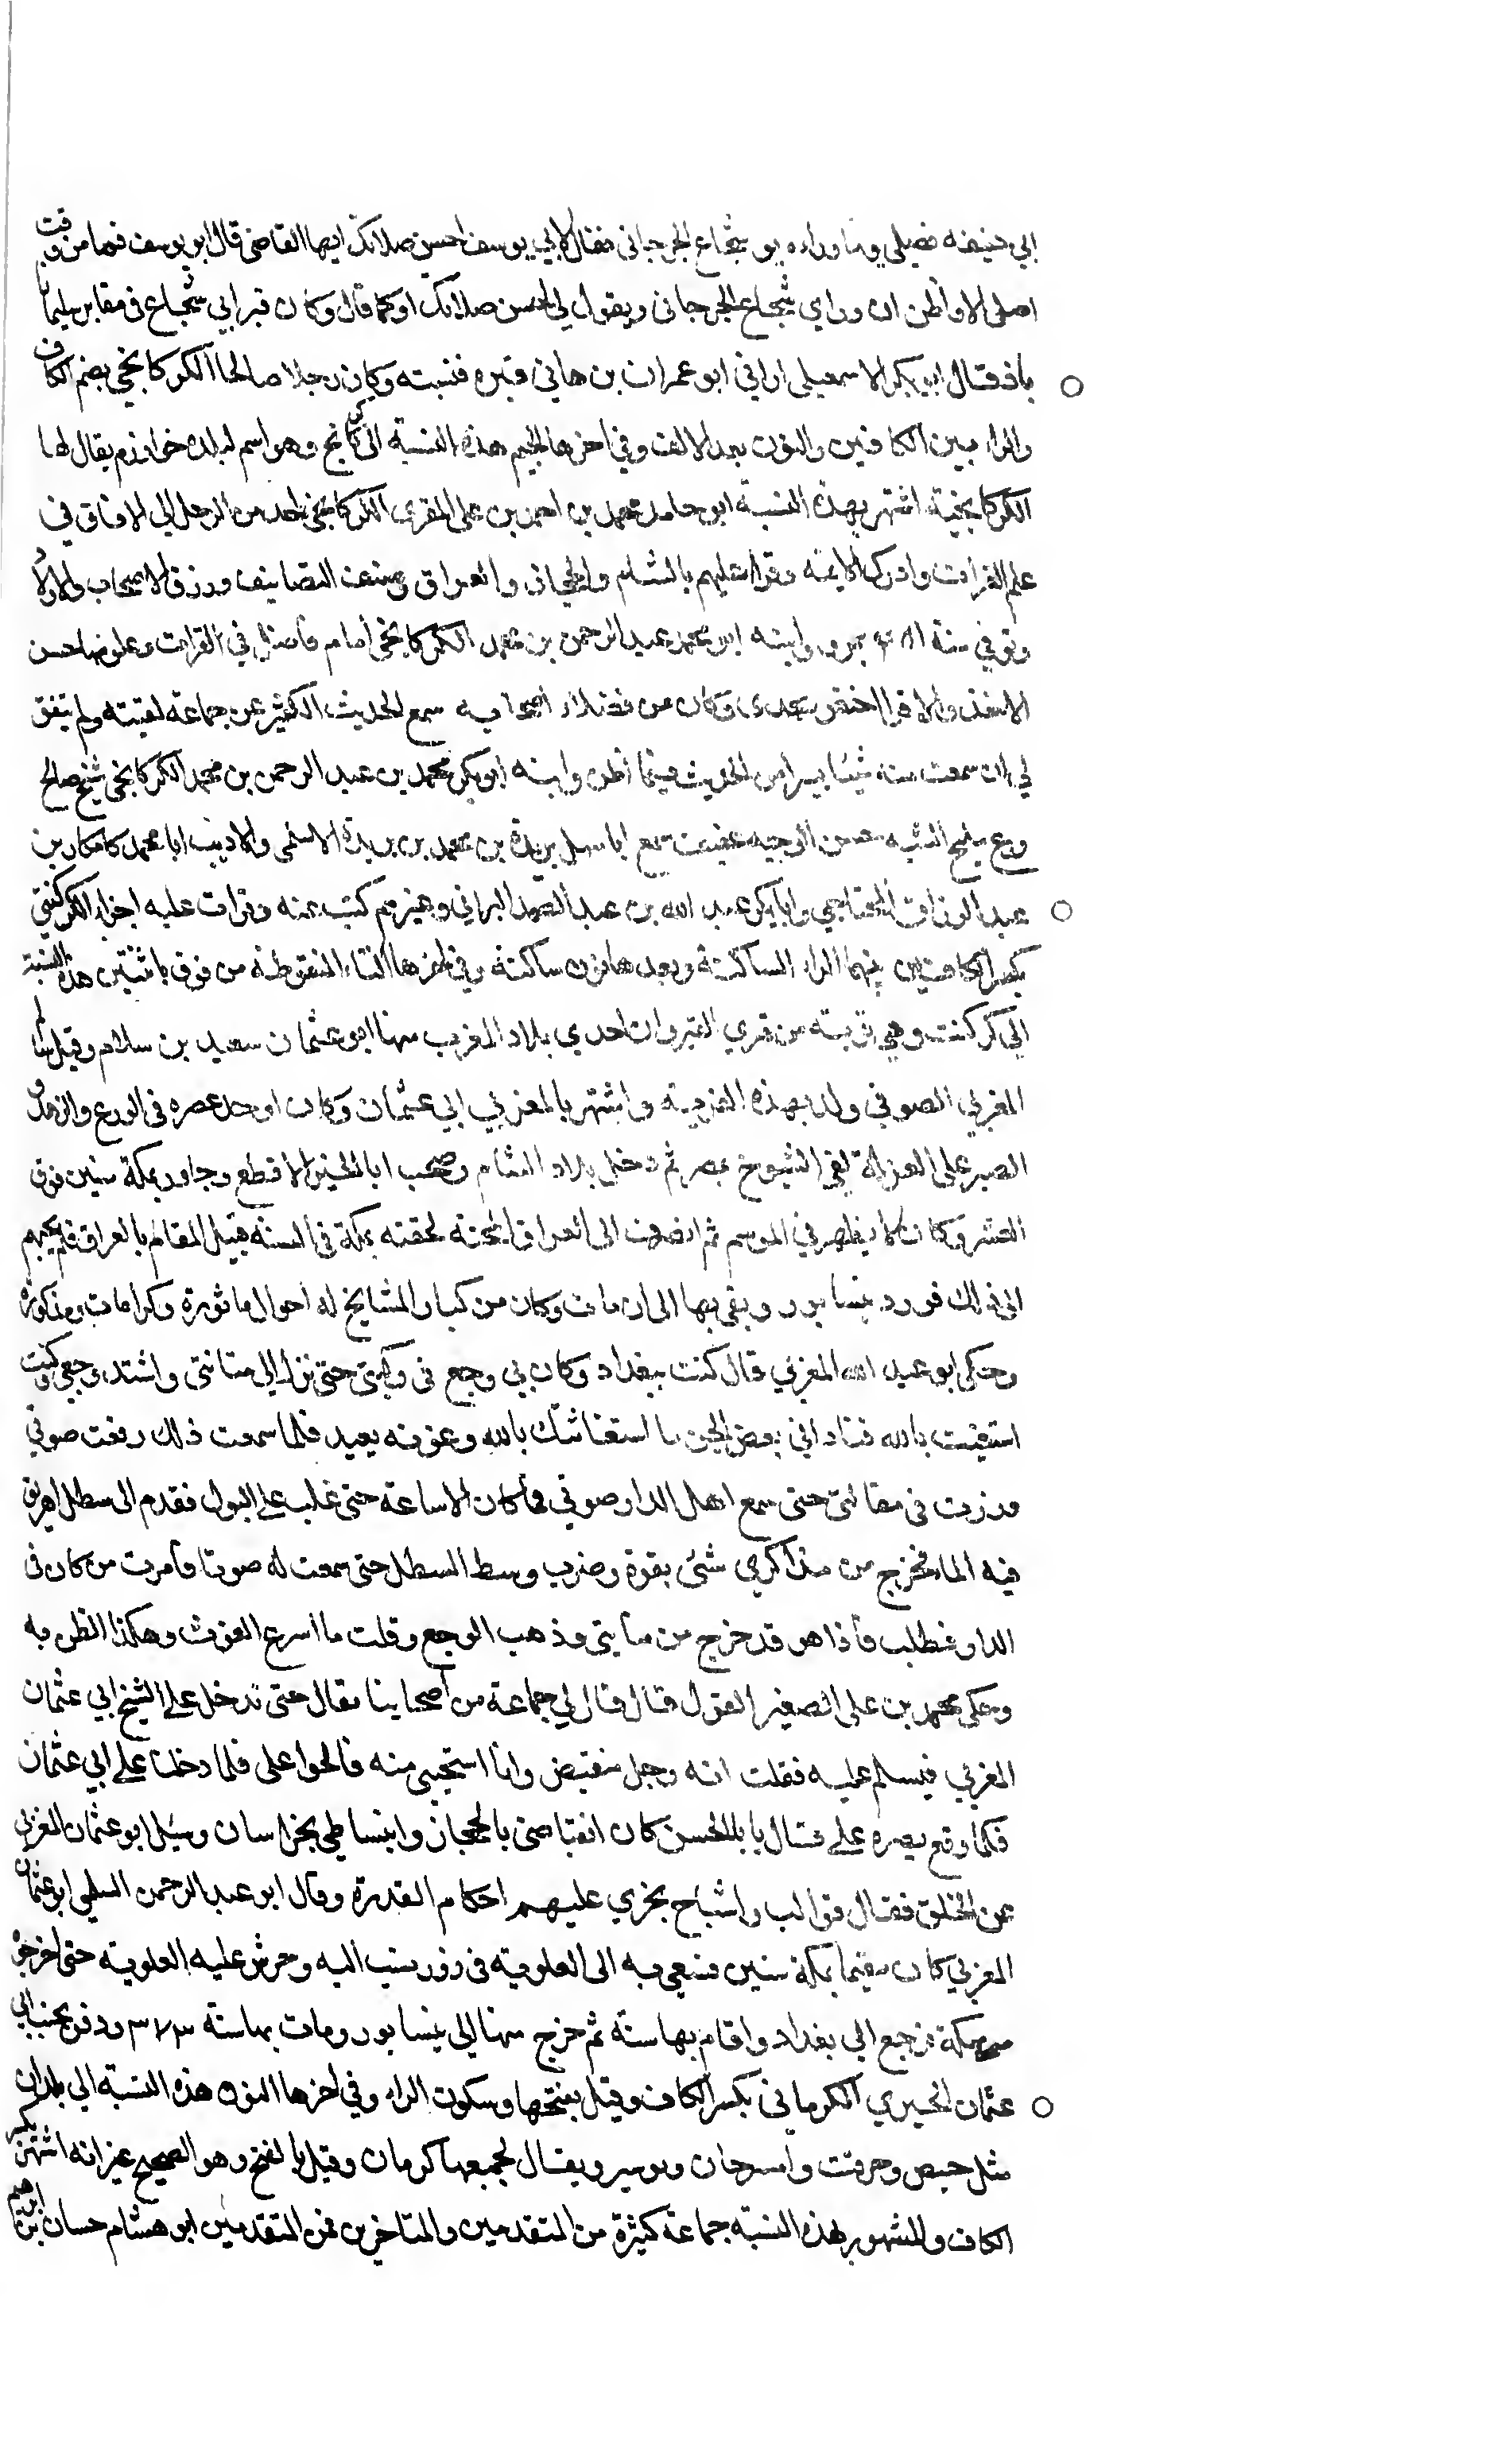 ابي حنيفه فصلي وما وراءه ابو شجاع الجرجاني فقال لابي يوسف احسن صلاتك ايها القاضي قال ابو يوسف فما من وقت
اصلي الا واظن ان وراي شجاع الجرجاني ويقول لي احسن صلاتك او كما قال وكان قبر ابي شجاع في مقابر سليمان
باذ فقال ابو بكر الاسمعيلي اراني ابو عمران بن هاني قبره فنسبته وكان رجلا صالحا الكركانجي بضم الكاف
والراء بين الكافين والنون بعد الالف وفي اخرها الجيم هذه النسبة الى كركانج وهو اسم لبلده خوارزم يقال لها
الكركانجية اشتهر بهذه النسبة ابو حامد محمد بن احمد بن علي المقري الكركانجي احد من الرحل الي الافاق في
علم القراات وادرك الايمة وقرا عليهم بالشام والحجاز والعراق وصنف التصانيف ورزق الاصحاب والاولاد
وتوفي سنة ٤٨١ بمرو وابنه ابو محمد عبد الرحمن بن محمد الكركانجي امام فاضل في القراات وعلومها حسن
الاخذ والاقرا اختص بجدي وكان من فضلاء اصحابه سمع الحديث الكثير عن جماعة لقيته ولم يتفق
لي ان سمعت منه شيئا يسيرا من الحديث فيما أظن وابنه ابو بكر محمد بن عبد الرحمن بن محمد الكركانجي شيخ صالح
ورع مليح الشيبه حسن الوجيه عفيف سمع ابا سهل بريدة بن محمد بن بريدة الاسلمي والاديب ابا محمد كامكار بن
عبد الرزاق المحتاجي وابا بكر عبد الله بن عبد الصمد البراني وغيرهم كتبت عنه وقرات عليه اجزاء الكركنتي
بكسر الكافين بينهما الراء الساكنة وبعدها نون ساكنة وفي اخرها التاء المنقوطة من فوق باثنتين هذه النسبة
الي كركنت وهي قرية من قري القيروان احدي بلاد المغرب منها ابو عثمان سعيد بن سلام وقيل سالم
المغربي الصوفي ولد بهذه القرية واشتهر بالمغربي ابي عثمان وكان اوحد عصره في الورع والزهد و
الصبر على العزلة لقي الشيوخ بمصر ثم دخل بلاد الشام وصحب ابا الخير الاقطع وجاور بمكة سنين فوق
العشر وكان لا يظهر في الموسم ثم انصرف الى العراق لمحنة لحقته بمكة في السنة فسئل المقام بالعراق فلم يجبهم
الى ذلك فورد نيسابور وبقي بها الى ان مات وكان من كبار المشايخ له احوال ماثورة وكرامات مذكورة
وحكى ابو عبد الله المغربي قال كنت ببغداد وكان بي وجع في ركبتي حتى نزل الي مثانتي واشتد وجعي وكنت
استغيث بالله فناداني بعض الجن ما استغاثتك بالله وغوثه بعيد فلما سمعت ذلك رفعت صوتي
وزدت في مقالتي حتى سمع اهل الدار صوتي فما كان الا ساعة حتى غلب علي البول فقدم الى سطل اهريق
فيه الماء فخرج من مذاكري شئ بقوة وضرب وسط السطل حتى سمعت له صوتا فامرت من كان في
الدار فطلب فاذا هو قد خرج من مثانتي وذهب الوجع وقلت ما اسرع الغوث وهكذا الظن به
وحكى محمد بن علي الصغير القول قال قال لي جماعة من أصحابنا فقال حتى تدخل علي الشيخ ابي عثمان
المغربي فيسلم عليه فقلت انه رجل منقبض وانا استحيى منه فالحوا على فلما دخلنا علي ابي عثمان
فكما وقع بصره علي قال يا ابا الحسن كان انقباضي بالحجاز وانبساطي بخراسان وسئل ابو عثمان المغربي
عن الخلق فقال قوالب واشباح تجري عليهم احكام القدرة وقال ابو عبد الرحمن السلمي ابو عثمان
المغربي كان مقيما بمكة سنين فسعي به الى العلوية في زور نسب اليه وحرش عليه العلوية حتى اخرجوه
من مكة فرجع الي بغداد واقام بها سنة ثم خرج منها الي نيسابور ومات بها سنة ٣٧٣ ودفن بجنب ابي
عثمان الحيري الكرماني بكسر الكاف وقيل بفتحها وسكون الراء وفي اخرها النون هذه النسبة الي بلدان
مثل خبيص وجيرفت والسيرجان وبردسير ويقال لجمعها كرمان وقيل بالفتح وهو الصحيح غير انه اشتهر بكسر
الكاف والمشهور بهذه النسبة جماعة كثيرة من المتقدمين والمتاخرين فمن المتقدمين ابو هشام حسان بن ابراهيم